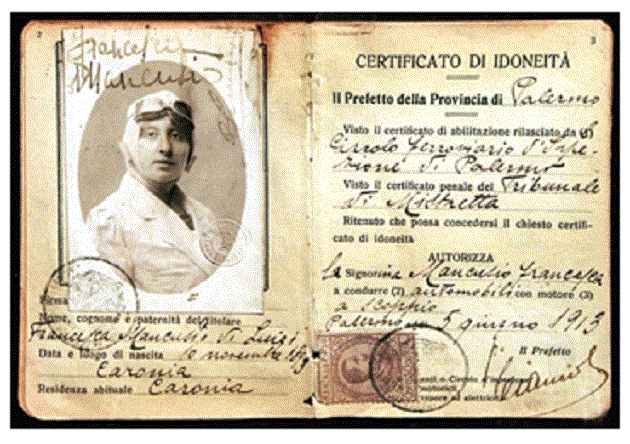 2
Francesca
Mancuso
Firma
Nome, cognome e paternità del titolare
Francesca Mancuso di Luigi
Data e luogo di nascita 10 novembre
Caronia
Residenza abituale Caronia
3
CERTIFICATO DI IDONEITÀ
Il Prefetto della Provincia di Palermo
Visto il certificato di abilitazione rilasciato da (1)
Circolo Ferroviario d'Ispe-
zione di Palermo
Visto il certificato penale del Tribunale
di Mistretta
Ritenuto che possa concedersi il chiesto certifi-
cato di idoneità
AUTORIZZA
la Signorina Mancuso Francesca
a condurre (2) automobili con motore (3)
a scoppio
Palermo 5 giugno 1913
Il Prefetto